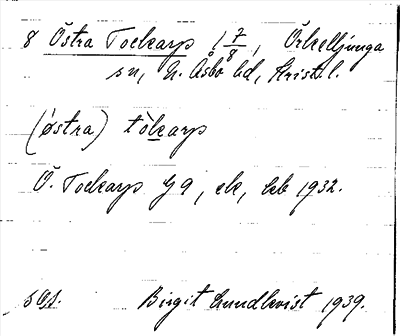 8 Östra Tockarp 1 7/8, Örkelljunga
sn, N. Åsbo hd, Krist. l.
(østra) tòkarp
Ö. Tockarp G 9, ek, kb 1932.
sGs.
Birgit Lundkvist 1939.